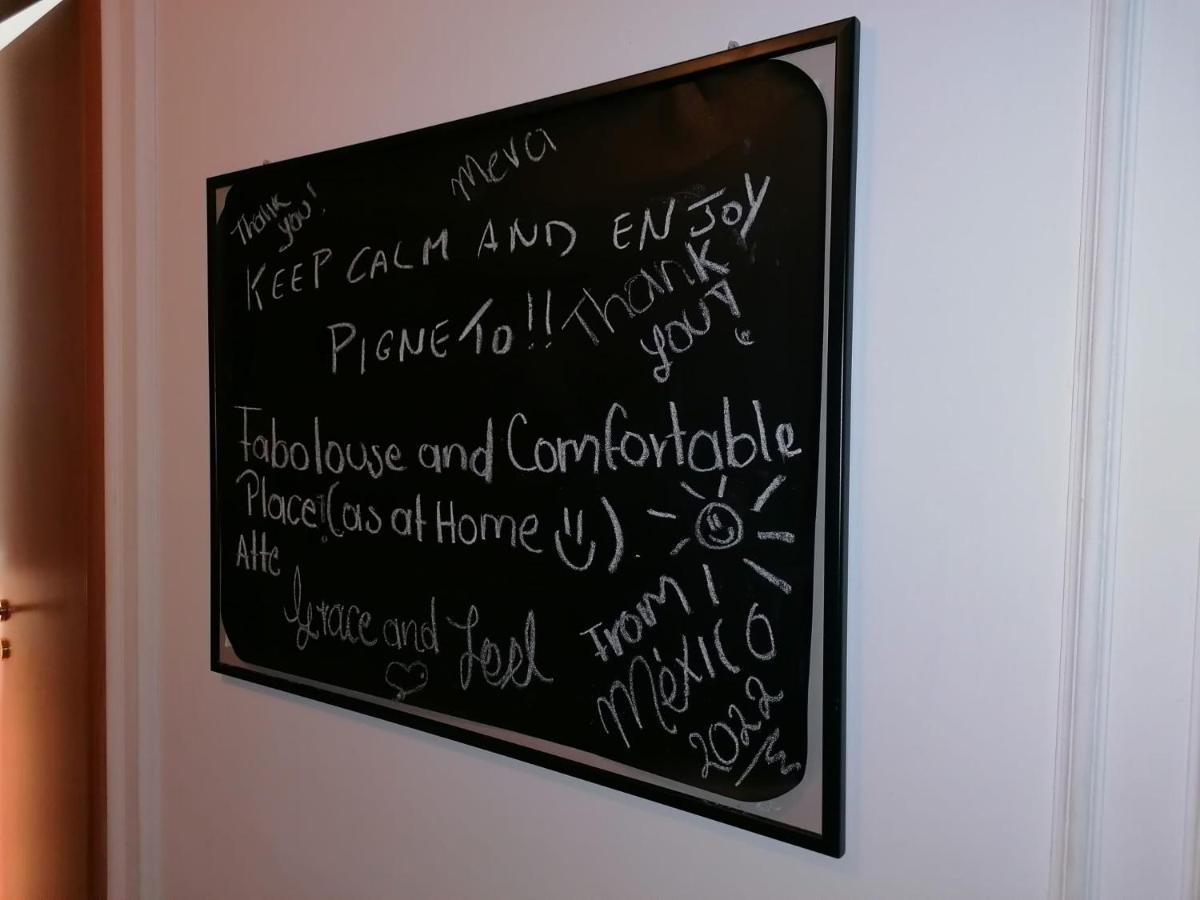 Thank
you!
KEEP CALM AND ENJOY
PIGNETO!!
Thank
you!
Fabolouse and Comfortable
Place! (as at Home
)
Atte
Grace and
From
México
2022